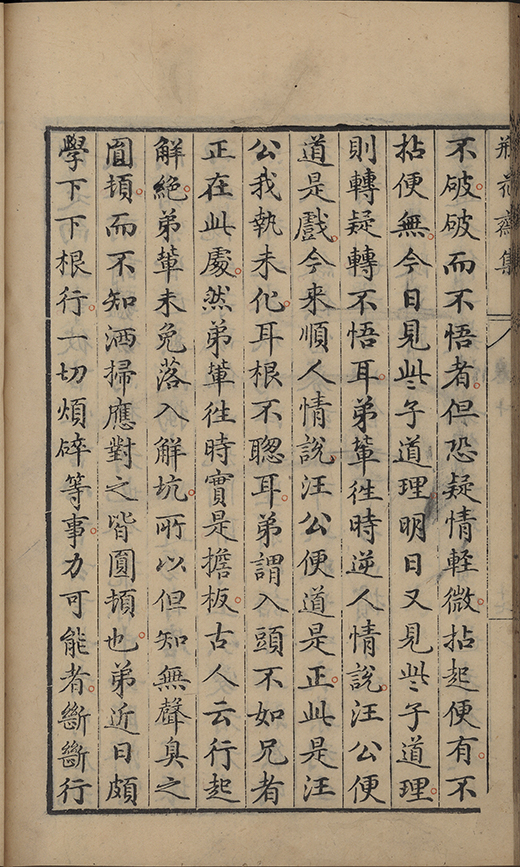 瓶花齋集
不破破而不悟者但恐疑情輕微拈起便有不
拈便無今日見些子道理明日又見些子道理
則轉疑轉不悟耳弟輩徃時逆人情說汪公便
道是戲今来順人情說汪公便道是正此是汪
公我執未化耳根不聰耳弟謂入頭不如兄者
正在此處然弟輩徃時實是擔板古人云行起
解絶弟輩未免落入解坑所以但知無聲臭之
圓頓而不知洒掃應對之皆圓頓也弟近日頗
學下下根行一切煩碎等事力可能者斷斷行